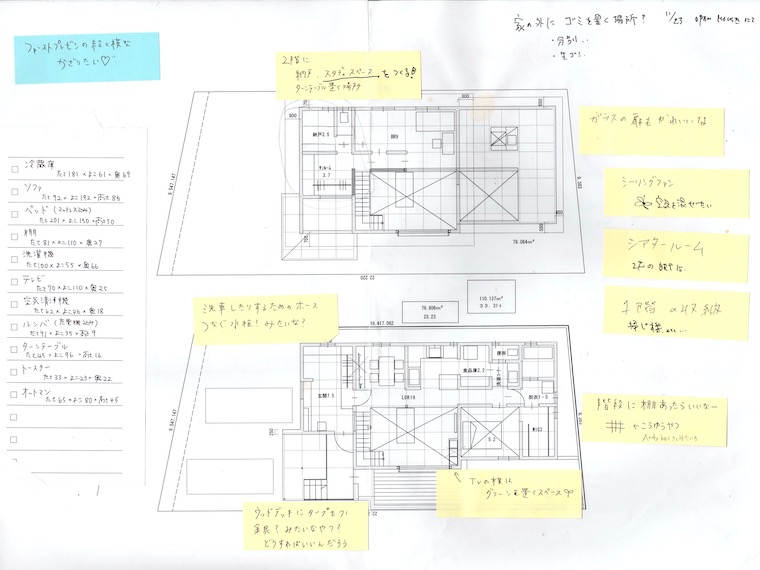 家の外に ゴミを置く場所? 11/23 OPEN HOUSE にて
・分別
・生ゴミ
ファーストプレゼンの絵と模型
かざりたい♡
2階に
納戸、スタディスペースをつくる
ターンテーブル置く場所
ガラスの扉も かわいいな
シーリングファン
空気を混ぜたい
シアタールーム
2Fの
1階の収納
掃じ機 etc...
階段に棚あったらいいなー
←こうゆうやつ
洗車したりするためのホース
つなぐ水栓?みたいな?
TVの横は
グリーンを置くスペース
ウッドデッキにタープをつける
金具?みたいなやつ?
どうすればいいんだろう
冷蔵庫
たて181×よこ61×奥69
ソファ
たて92×よこ192×高さ86
ベッド(マットレス込み)
たて201×よこ150×高さ50
棚
たて81×よこ110×奥27
洗濯機
たて100×よこ55×奥66
テレビ
たて70×よこ110×奥25
空気清浄機
たて62×よこ36×奥18
ルンバ(充電機込み)
たて41×よこ35×高さ9
ターンテーブル
たて45×よこ96×高さ16
トースター
たて33×よこ23×奥22
オットマン
たて65×よこ80×高さ45
納戸2.5
3.7
800
800
550
450
9,547.147
9,383
22 220
79.064m²
76.806m²
23.23
110.137m²
33.31t
19,417.062
玄関7.5
LDK19
食品庫2.2
便所
脱衣1-5
5.2
250
9,547.147
22.22